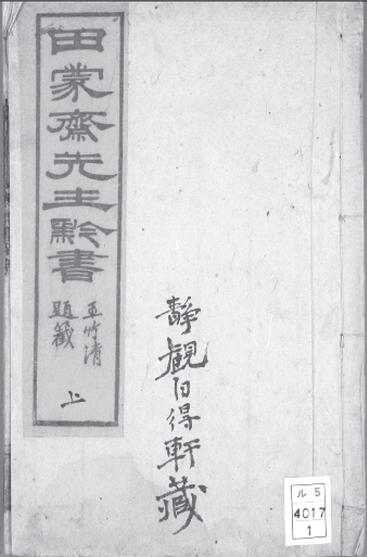 田蒙齋先生黔書
王竹清
題籤
上
靜觀自得軒藏
ル 5
4017
1